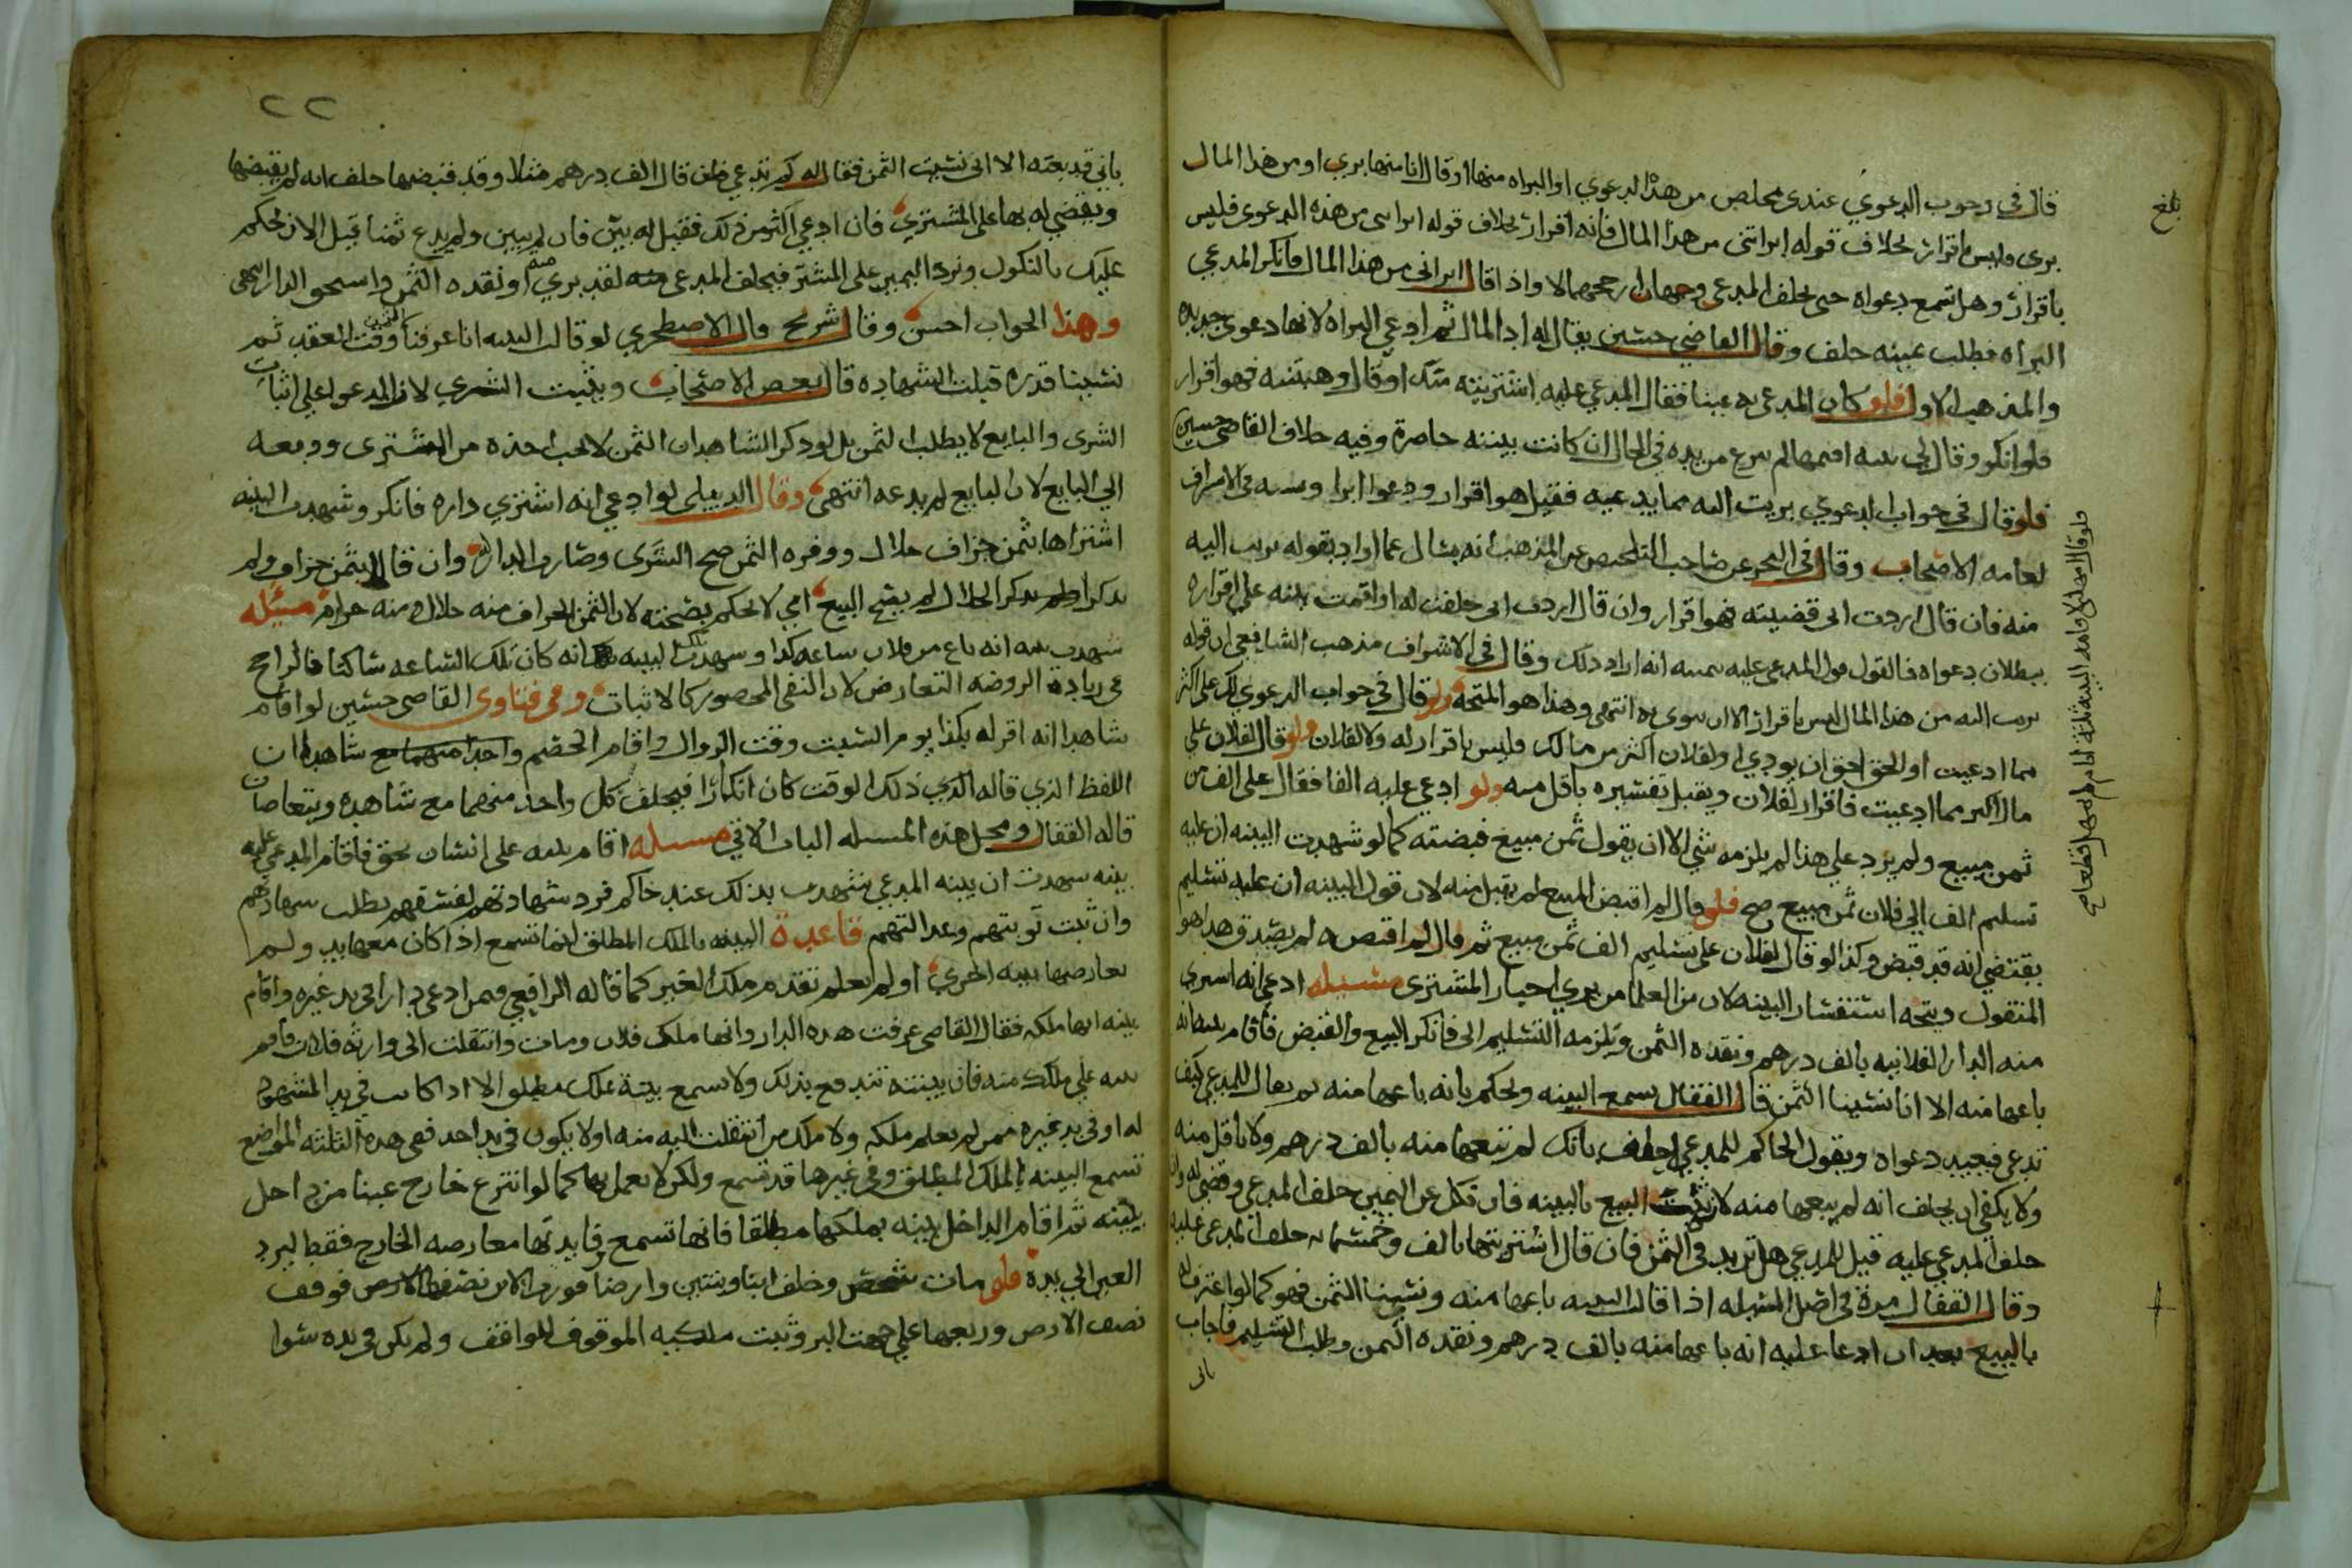 قال في وجوب الدعوي عندى مخلص من هذا الدعوي او البراه منها او قال انا منها بري او من هذا المال
بري وليس باقرار بخلاف قوله ابراتنى من هذا المال فانه اقرار بخلاف قوله ابراني من هذه الدعوى فليس
باقرار وهل تسمع دعواه حتى يحلف المدعي وجهان ارجحهما لا واذا قال ابراني من هذا المال فانكر المدعي
البراه فطلب يمينه حلف وقال القاضي حسين يقال له اد المال ثم ادعي البراه لانها دعوى جديده
والمذهب الاول فلو كان المدعى به عينا فقال المدعي عليه اشتريته منك او قال وهبتنيه فهو اقرار
فلو انكر وقال لي بينه اقيمها لم ينزع من يده في الحال ان كانت بينته حاضرة وفيه خلاف القاضي حسين
فلو قال في جواب الدعوي بريت اليه مما يدعيه فقيل هو اقرار ودعوا ابرا ونسبه في الاشراف
لعامه الاصحاب وقال في البحر عن صاحب التلخيص عن المذهب انه يسال عما اراد بقوله بريت اليه
منه فان قال اردت اني قضيته فهو اقرار وان قال اردت اني حلفت له او اقمت بينه علي اقراره
ببطلان دعواه فالقول قول المدعي عليه بيمينه انه اراد ذلك وقال في الاشراف مذهب الشافعي ان قوله
بريت اليه من هذا المال ليس باقرار الا ان ينوى به انتهى وهذا هو المتجه ولو قال في جواب الدعوي لك علي اكثر
مما ادعيت او الحق احق ان يودي او لفلان اكثر من مالك فليس باقرار له ولا لفلان ولو قال لفلان علي
مال اكبر مما ادعيت فاقرار لفلان ويقبل تفسيره باقل منه ولو ادعي عليه الفا فقال على الف من
ثمن مبيع ولم يزد علي هذا لم يلزمه شي الا ان يقول ثمن مبيع قبضته كما لو شهدت البينه ان عليه
تسليم الف الي فلان ثمن مبيع صح فلو قال لم اقبض المبيع لم يقبل منه لان قول البينه ان عليه تسليم
يقتضي انه قد قبض وكذا لو قال لفلان علي تسليم الف ثمن مبيع ثم قال لم اقبضه لم يصدق هذا هو
المنقول ويتجه استفسار البينه لان من العلما من يري اجبار المشتري مسئله ادعي انه اشتري
منه الدار الفلانيه بالف درهم ونقده الثمن ويلزمه التسليم الي فانكر البيع والقبض فاقام بينه انه
باعها منه الا انا نسينا الثمن قال القفال يسمع البينه ويحكم بانه باعها منه ثم يقال للمدعي كيف
تدعي فيعيد دعواه ويقول الحاكم للمدعي احلف بانك لم تبعها منه بالف درهم ولا باقل منه
ولا يكفي ان يحلف انه لم يبعها منه لان ثبت البيع بالبينه فان نكل عن اليمين حلف المدعي وقضي له وان
حلف المدعي عليه قيل للمدعي هل تزيد في الثمن فان قال اشتريتها بالف وخمسمايه حلف المدعي عليه
وقال القفال مرة في اصل المسيله اذا قالت البينه باعها منه ونسينا الثمن فهو كما لو اعترف له
بالبيع بعد ان ادعا عليه انه باعها منه بالف درهم ونقده الثمن وطلب التسليم فاجاب
باني
بلغ
٢٢
باني قد بعته الا اني نسيت الثمن فقال له كم تدعي فان قال الف درهم مثلا وقد قبضها حلف انه لم يقبضها
ويقضي له بها على المشتري فان ادعي اكثر من ذلك فقيل له بين فان لم يبين ولم يدع ثمنا قيل الان نحكم
عليك بالنكول ونرد اليمين على المشتر فيحلف المدعى منه لقد بري منه او نقده الثمن واستحق الدار انتهى
وهذا الجواب احسن وقال شريح قال الاصطخري لو قالت البينه انا عرفنا الثمن وقت العقد ثم
نسينا قدره قبلت الشهاده قال بعض الاصحاب ويثبت الشري لان المدعوا علي اثبات
الشرى والبايع لا يطلب الثمن بل لو ذكر الشاهدان الثمن لا يجب اخذه من المشتري ودفعه
الي البايع لان البايع لم يدعه انتهى وقال الدبيلي لو ادعي انه اشتري داره فانكر وشهدت البينه
اشتراها بثمن جزاف حلال ووفره الثمن صح الشرى وصارت الدار له وان قال الثمن جزاف ولم
يذكر الحلال لم يصح البيع اي لا نحكم بصحته لان الثمن الجزاف منه حلال ومنه حرام مسئله
شهدت بينه انه باع من فلان ساعه كذا وشهدت تلك البينه انه كان تلك الساعه ساكتا فالراجح
في زيادة الروضه التعارض لان النفي المحصور كالاثبات وفي فتاوى القاضي حسين لو اقام
شاهدا انه اقر له بكذا يوم السبت وقت الزوال واقام الخصم شاهدا ان
اللفظ الذي قاله الذي ذلك الوقت كان انكارا فيحلف كل واحد منهما مع شاهده ويتعارضان
قاله القفال ومحل هذه المسله الباب الاتي مسله اقام بينه على انسان بحق فاقام المدعي عليه
بينه شهدت ان بينه المدعي شهدت بذلك عند حاكم فرد شهادتهم لفسقهم بطلب شهادتهم
وان ثبت توبتهم وعدالتهم قاعدة البينه بالملك المطلق انما تسمع اذا كان معها يد ولم
تعارضها بينه اخري او لم يعلم تقدم ملك الغير كما قاله الرافعي فيمن ادعي دارا في يد غيره واقام
بينه انها ملكه فقال القاضي عرفت هذه الدار وانها ملك فلان ومات وانتقلت الى وارثه فلان فاقم
بينه علي ملك منه فان بينته تندفع بذلك ولا تسمع بينة بملك مطلق الا اذا كانت في يد المشهود
له او في يد غيره ممن لم يعلم ملكه ولا ملك من انتقلت اليه منه او لا يكون في يد احد ففي هذه الثلثه المواضع
تسمع البينه بالملك المطلق وفي غيرها قد تسمع ولكن لا يعمل بها كما لو انتزع خارج عينا من داخل
ببينه ثم اقام الداخل بينه بملكها مطلقا فانها تسمع وفايدتها معارضه الخارج فقط ليرد
العين الي يده فلو مات شخص وخلف ابنا وبنتين وارضا فورث الابن نصفها الارض فوقف
نصف الارض وربعها علي جهت البر وثبت ملكيه الموقوف للواقف ولم يكن في يده سوا